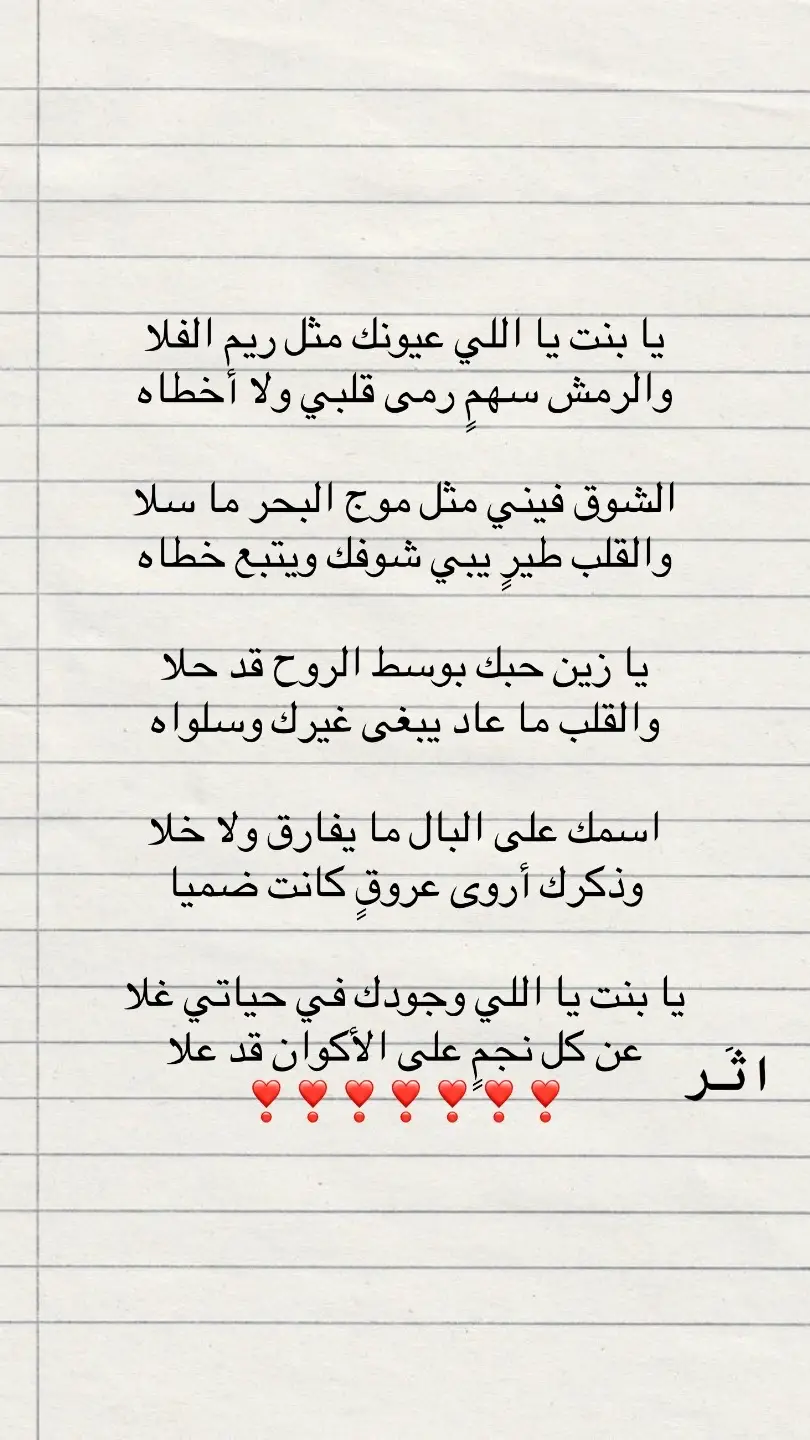 يا بنت يا اللي عيونك مثل ريم الفلا
والرمش سهمٍ رمى قلبي ولا أخطاه
الشوق فيني مثل موج البحر ما سلا
والقلب طيرٍ يبي شوفك ويتبع خطاه
يا زين حبك بوسط الروح قد حلا
والقلب ما عاد يبغى غيرك وسلواه
اسمك على البال ما يفارق ولا خلا
وذكرك أروى عروقٍ كانت ضميا
يا بنت يا اللي وجودك في حياتي غلا
عن كل نجمٍ على الأكوان قد علا
❣️❣️❣️❣️❣️❣️❣️
اثَـر